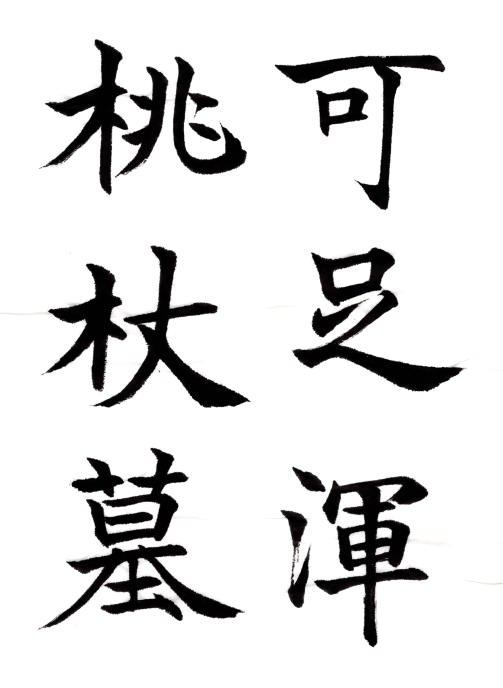 可足渾
桃杖墓